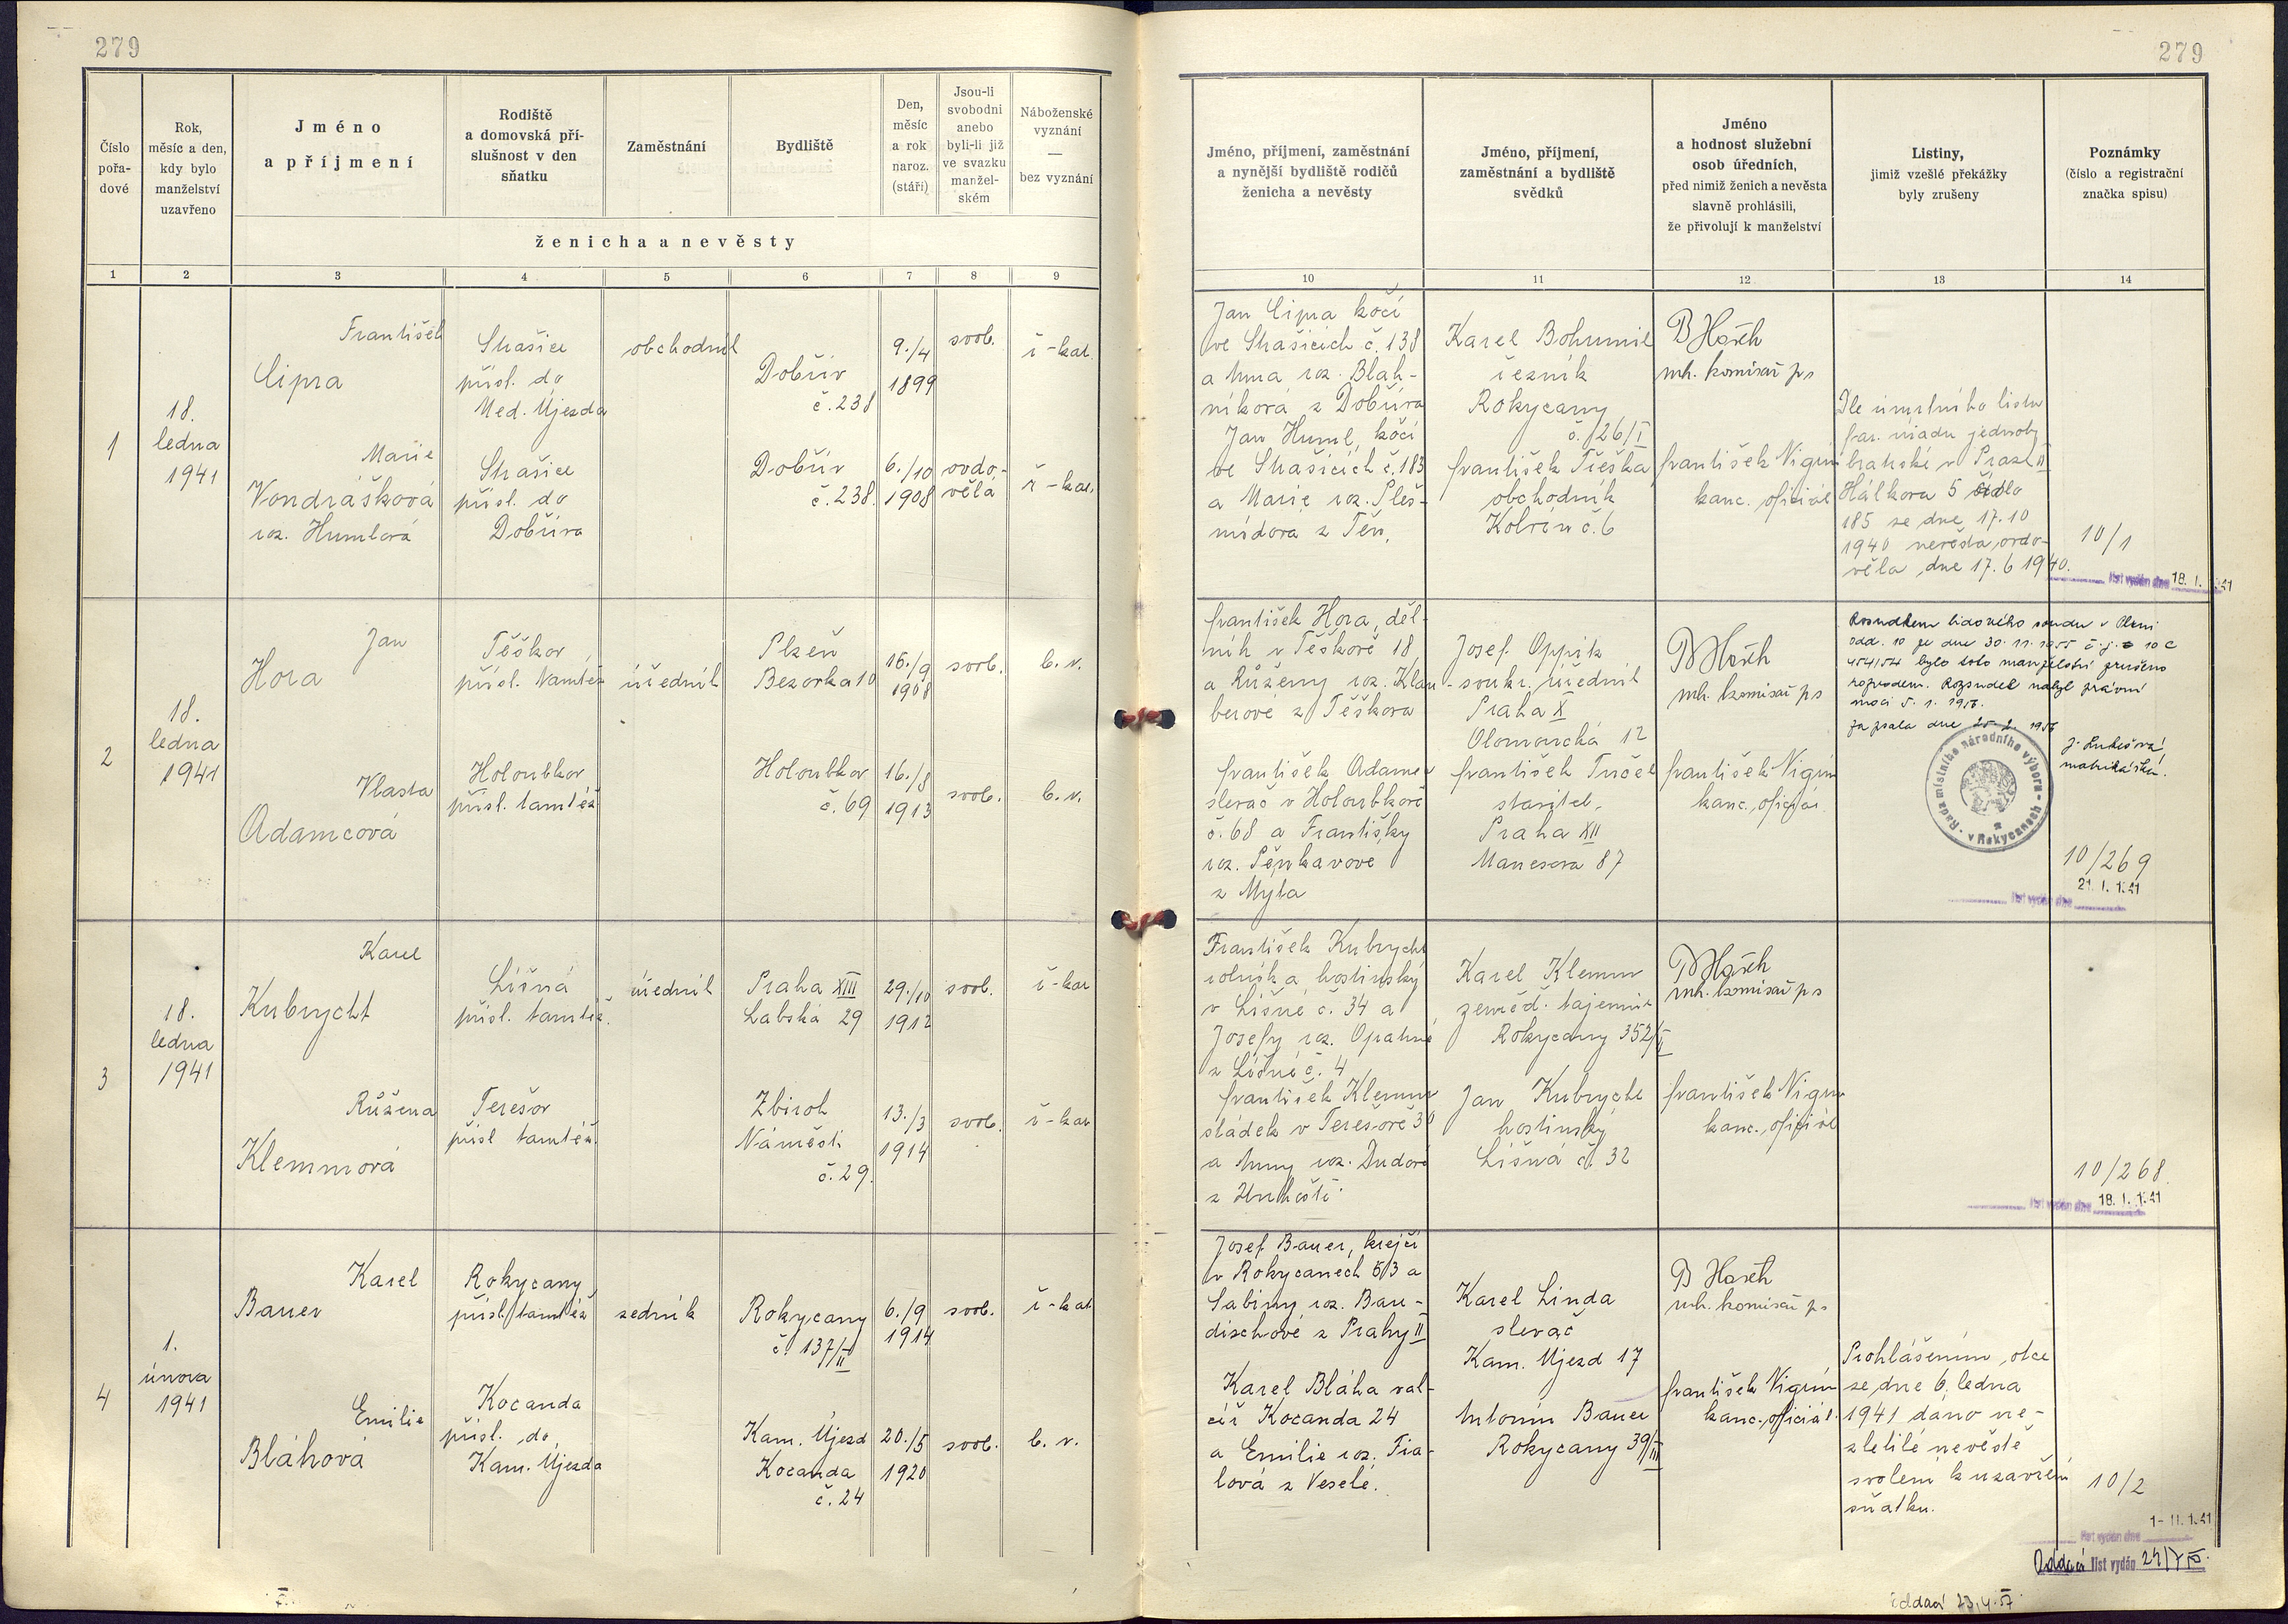 279
279
Číslo
pořa-
dové
Rok,
měsíc a den,
kdy bylo
manželství
uzavřeno
Jméno
a příjmení
Rodiště
a domovská pří-
slušnost v den
sňatku
Zaměstnání
Bydliště
Den,
měsíc
a rok
naroz.
(stáří)
Jsou-li
svobodni
anebo
byli-li již
ve svazku
manžel-
ském
Náboženské
vyznání
—
bez vyznání
ženicha a nevěsty
1 2 3 4 5 6 7 8 9
Jméno, příjmení, zaměstnání
a nynější bydliště rodičů
ženicha a nevěsty
Jméno, příjmení,
zaměstnání a bydliště
svědků
Jméno
a hodnost služební
osob úředních,
před nimiž ženich a nevěsta
slavně prohlásili,
že přivolují k manželství
Listiny,
jimiž vzešlé překážky
byly zrušeny
Poznámky
(číslo a registrační
značka spisu)
10 11 12 13 14
1
18.
ledna
1941
František
Cipra
Strašice
přísl. do
Med. Újezda
obchodník
Dobřív
č. 238
9./4
1899
svob.
ř-kat.
Marie
Vondrášková
roz. Humlová
Strašice
přísl. do
Dobříva
Dobřív
č. 238.
6./10
1908
ovdo-
vělá
ř-kat.
Jan Cipra kočí
ve Strašicích č. 138
a Anna roz. Blah-
níková z Dobříva
Jan Huml, kočí
ve Strašicích č. 183
a Marie roz. Pleš-
mídova z Těn,
Karel Bohumil
řezník
Rokycany
č. 126/I
František Třeška
obchodník
Kolvín č. 6
B Horčh
mh. komisař ps
František Nigrin
kanc. oficiál
Dle úmrtního listu
far. úřadu jednoty
bratrské v Praze II
Hálkova 5 číslo
185 ze dne 17.10
1940 nevěsta ovdo-
věla dne 17.6 1940.
10/1
list vydán dne 18. I. 1941
2
18.
ledna
1941
Jan
Hora
Těškov
přísl. tamtéž
úředník
Plzeň
Bezovka 10
16./9
1908
svob.
b. v.
Vlasta
Adamcová
Holoubkov
přísl. tamtéž
Holoubkov
č. 69
16./8
1913
svob.
b. v.
František Hora, děl-
ník v Těškově 18,
a Růženy roz. Klau-
berové z Těškova
František Adamec
slevač v Holoubkově
č. 68 a Františky
roz. Pěnkavové
z Myta
Josef Oppik
soukr. úředník
Praha X
Olomoucká 12
František Tuček
stavitel.
Praha XII
Manesova 87
B Horčh
mh. komisař ps
František Nigrin
kanc. oficiál
Rozsudkem lidového soudu v Plzni
odd. 10 ze dne 30. 11. 1955 č. j. 10 C
454/54 bylo toto manželství zrušeno
rozvodem. Rozsudek nabyl právní
moci 5. 1. 1956.
Zapsala dne 25. 2. 1956
J. Lukešová,
matrikářka.
Rada místního národního výboru
v Rokycanech
10/269
21. I. 1941
list vydán dne
3
18.
ledna
1941
Karel
Kubrycht
Líšná
přísl. tamtéž.
úředník
Praha XIII
Labská 29
29./10
1912
svob.
ř-kat
Růžena
Klemmová
Terešov
přísl tamtéž.
Zbiroh
Náměstí
č. 29.
13./3
1914
svob.
ř-kat
František Kubrycht
rolník a hostinský
v Líšné č. 34 a
Josefy roz. Opatrné
z Líšné č. 4
František Klemm
sládek v Terešově 30
a Anny roz. Dudové
z Unhoště.
Karel Klemm
zeměd. tajemník
Rokycany 352/I
Jan Kubrycht
hostinský
Líšná č. 32
B Horčh
mh. komisař ps
František Nigrin
kanc. oficiál
10/268
list vydán dne 18. I. 1941
4
1.
února
1941
Karel
Bauer
Rokycany
přísl. tamtéž
zedník
Rokycany
č. 137/II
6./9
1914
svob.
ř-kat
Emilie
Bláhová
Kocanda
přísl. do
Kam. Újezda
Kam. Újezd
Kocanda
č. 24
20./5
1920
svob.
b. v.
Josef Bauer, krejčí
v Rokycanech 5/3 a
Sabiny roz. Bau-
dischové z Prahy II
Karel Bláha val-
cíř Kocanda 24
a Emilie roz. Fia-
lová z Veselé.
Karel Linda
slevač
Kam. Újezd 17
Antonín Bauer
Rokycany 39/III
B Horčh
mh. komisař ps
František Nigrin
kanc. oficiál.
Prohlášením otce
ze dne 6. ledna
1941 dáno ne-
zletilé nevěstě
svolení k uzavření
sňatku.
10/2
1- II. 1941
list vydán dne
Oddací list vydán
oddací 23.4.57